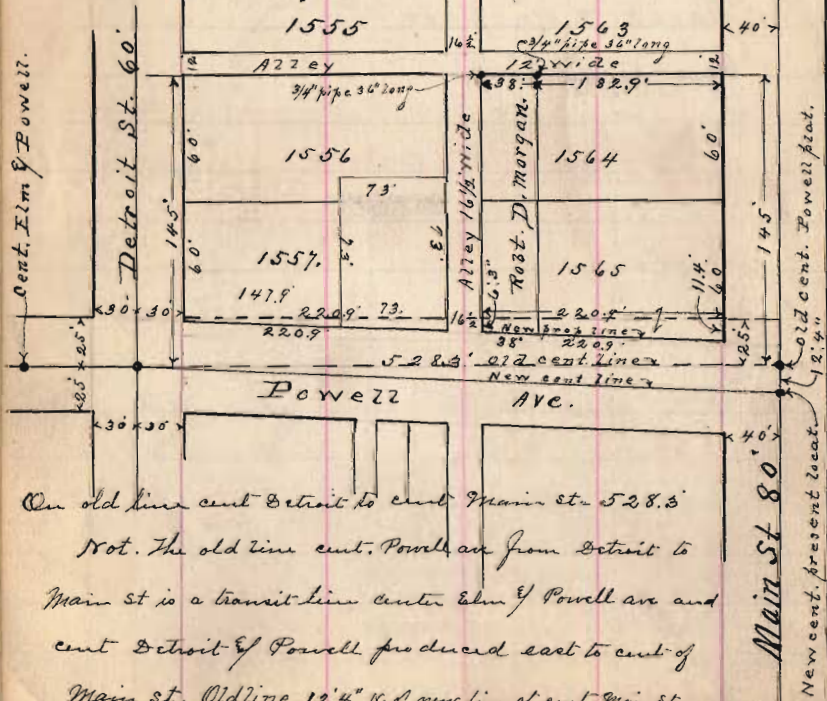 1555
1563
40'
16½
¾" pipe 36" long
Alley
12' wide
12
12
¾" pipe 36" long
38'
182.9'
Cent. Elm & Powell.
Detroit St. 60'
145'
60'
1556
73'
73'
73'
60'
1557.
147.9'
220.9'
73.
220.9
Alley 16½ wide
16½
Robt. D. Morgan.
1564
60'
1565
6.3"
11.4'
60
220.9'
New prop line
38'
220.9'
145'
25'
30' 30'
25' 25'
528.3' old cent. line
New cent line
Powell Ave.
old cent. Powell plat.
12'4"
30' 30'
40'
Main St 80'
New cent. present locat.
On old line cent Detroit to cent Main st = 528.3'
Not. The old line cent. Powell ave from Detroit to
Main st is a transit line center Elm & Powell ave and
cent Detroit & Powell produced east to cent of
Main st. Old line 12'4" N. of new line at cent Main St.